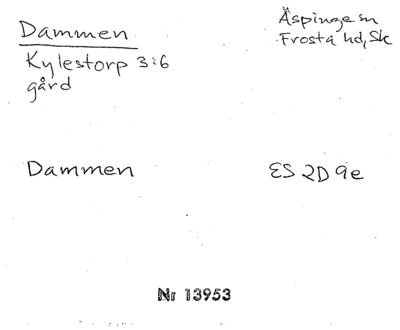 Dammen
Äspinge sn
Kylestorp 3:6
Frosta hd, Sk
gård
Dammen
ES 2D 9e
Nr 13953